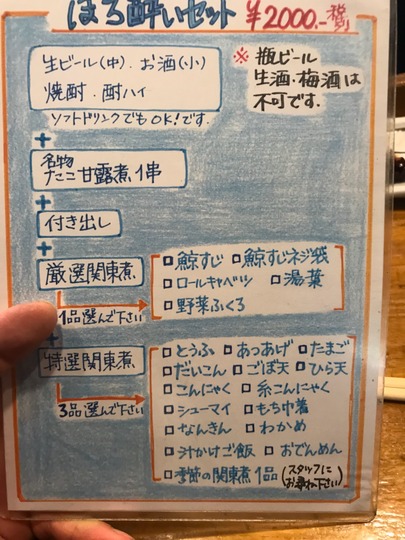 ほろ酔いセット ¥2000.-税別
生ビール(中)．お酒(小)
焼酎．酎ハイ
ソフトドリンクでもOK!です.
※ 瓶ビール
生酒・梅酒は
不可です。
+
名物
たこ甘露煮1串
+
付き出し
+
厳選関東煮
1品選んで下さい
□鯨すじ □鯨すじネジ袋
□ロールキャベツ □湯葉
□野菜ふくろ
+
特選関東煮
3品選んで下さい
□とうふ □あつあげ □たまご
□だいこん □ごぼ天 □ひら天
□こんにゃく □糸こんにゃく
□シューマイ □もち巾着
□なんきん □わかめ
□汁かけご飯 □おでんめん
□季節の関東煮1品(スタッフにお尋ね下さい)